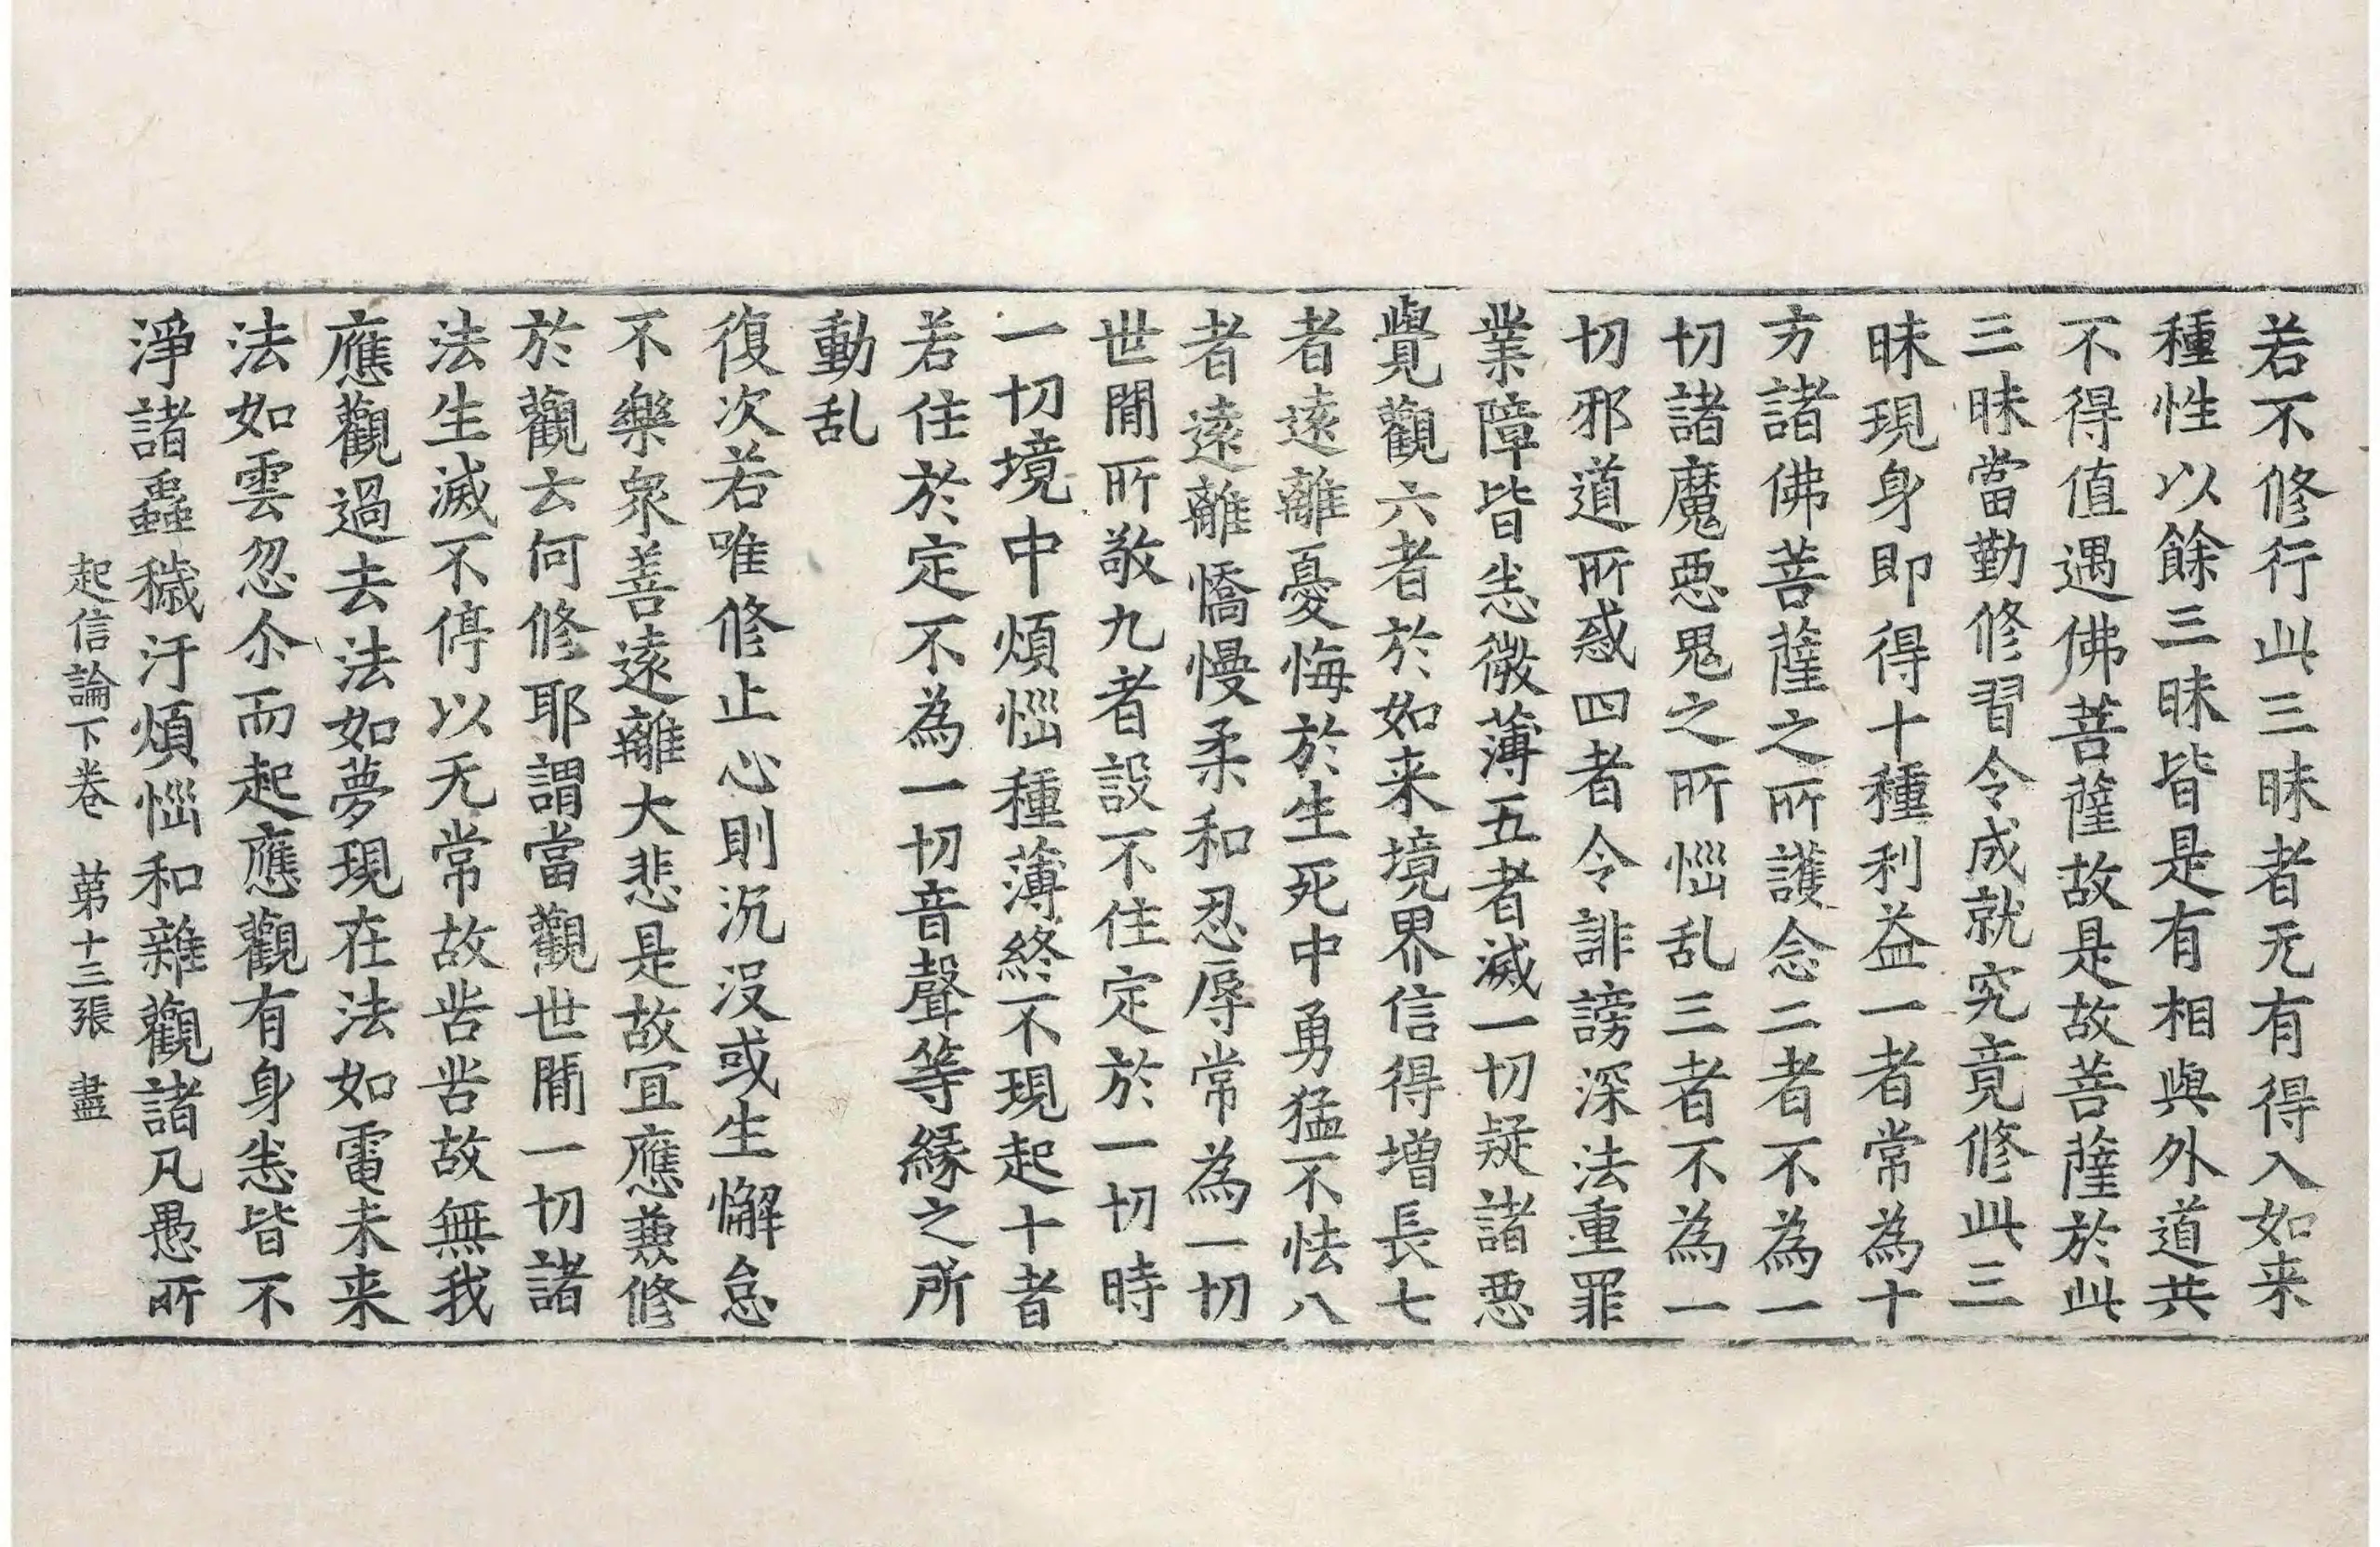 若不修行此三昧者无有得入如来
種性以餘三昧皆是有相與外道共
不得值遇佛菩薩故是故菩薩於此
三昧當勤修習令成就究竟修此三
昧現身即得十種利益一者常為十
方諸佛菩薩之所護念二者不為一
切諸魔惡鬼之所惱乱三者不為一
切邪道所惑四者令誹謗深法重罪
業障皆悉微薄五者滅一切疑諸惡
覺觀六者於如来境界信得增長七
者遠離憂悔於生死中勇猛不怯八
者遠離憍慢柔和忍辱常為一切
世閒所敬九者設不住定於一切時
一切境中煩惱種薄終不現起十者
若住於定不為一切音聲等緣之所
動乱
復次若唯修止心則沉沒或生懈怠
不樂衆善遠離大悲是故宜應兼修
於觀云何修耶謂當觀世閒一切諸
法生滅不停以无常故苦苦故無我
應觀過去法如夢現在法如電未来
法如雲忽尒而起應觀有身悉皆不
淨諸蟲穢汙煩惱和雜觀諸凡愚所
起信論下卷 第十三張 盡